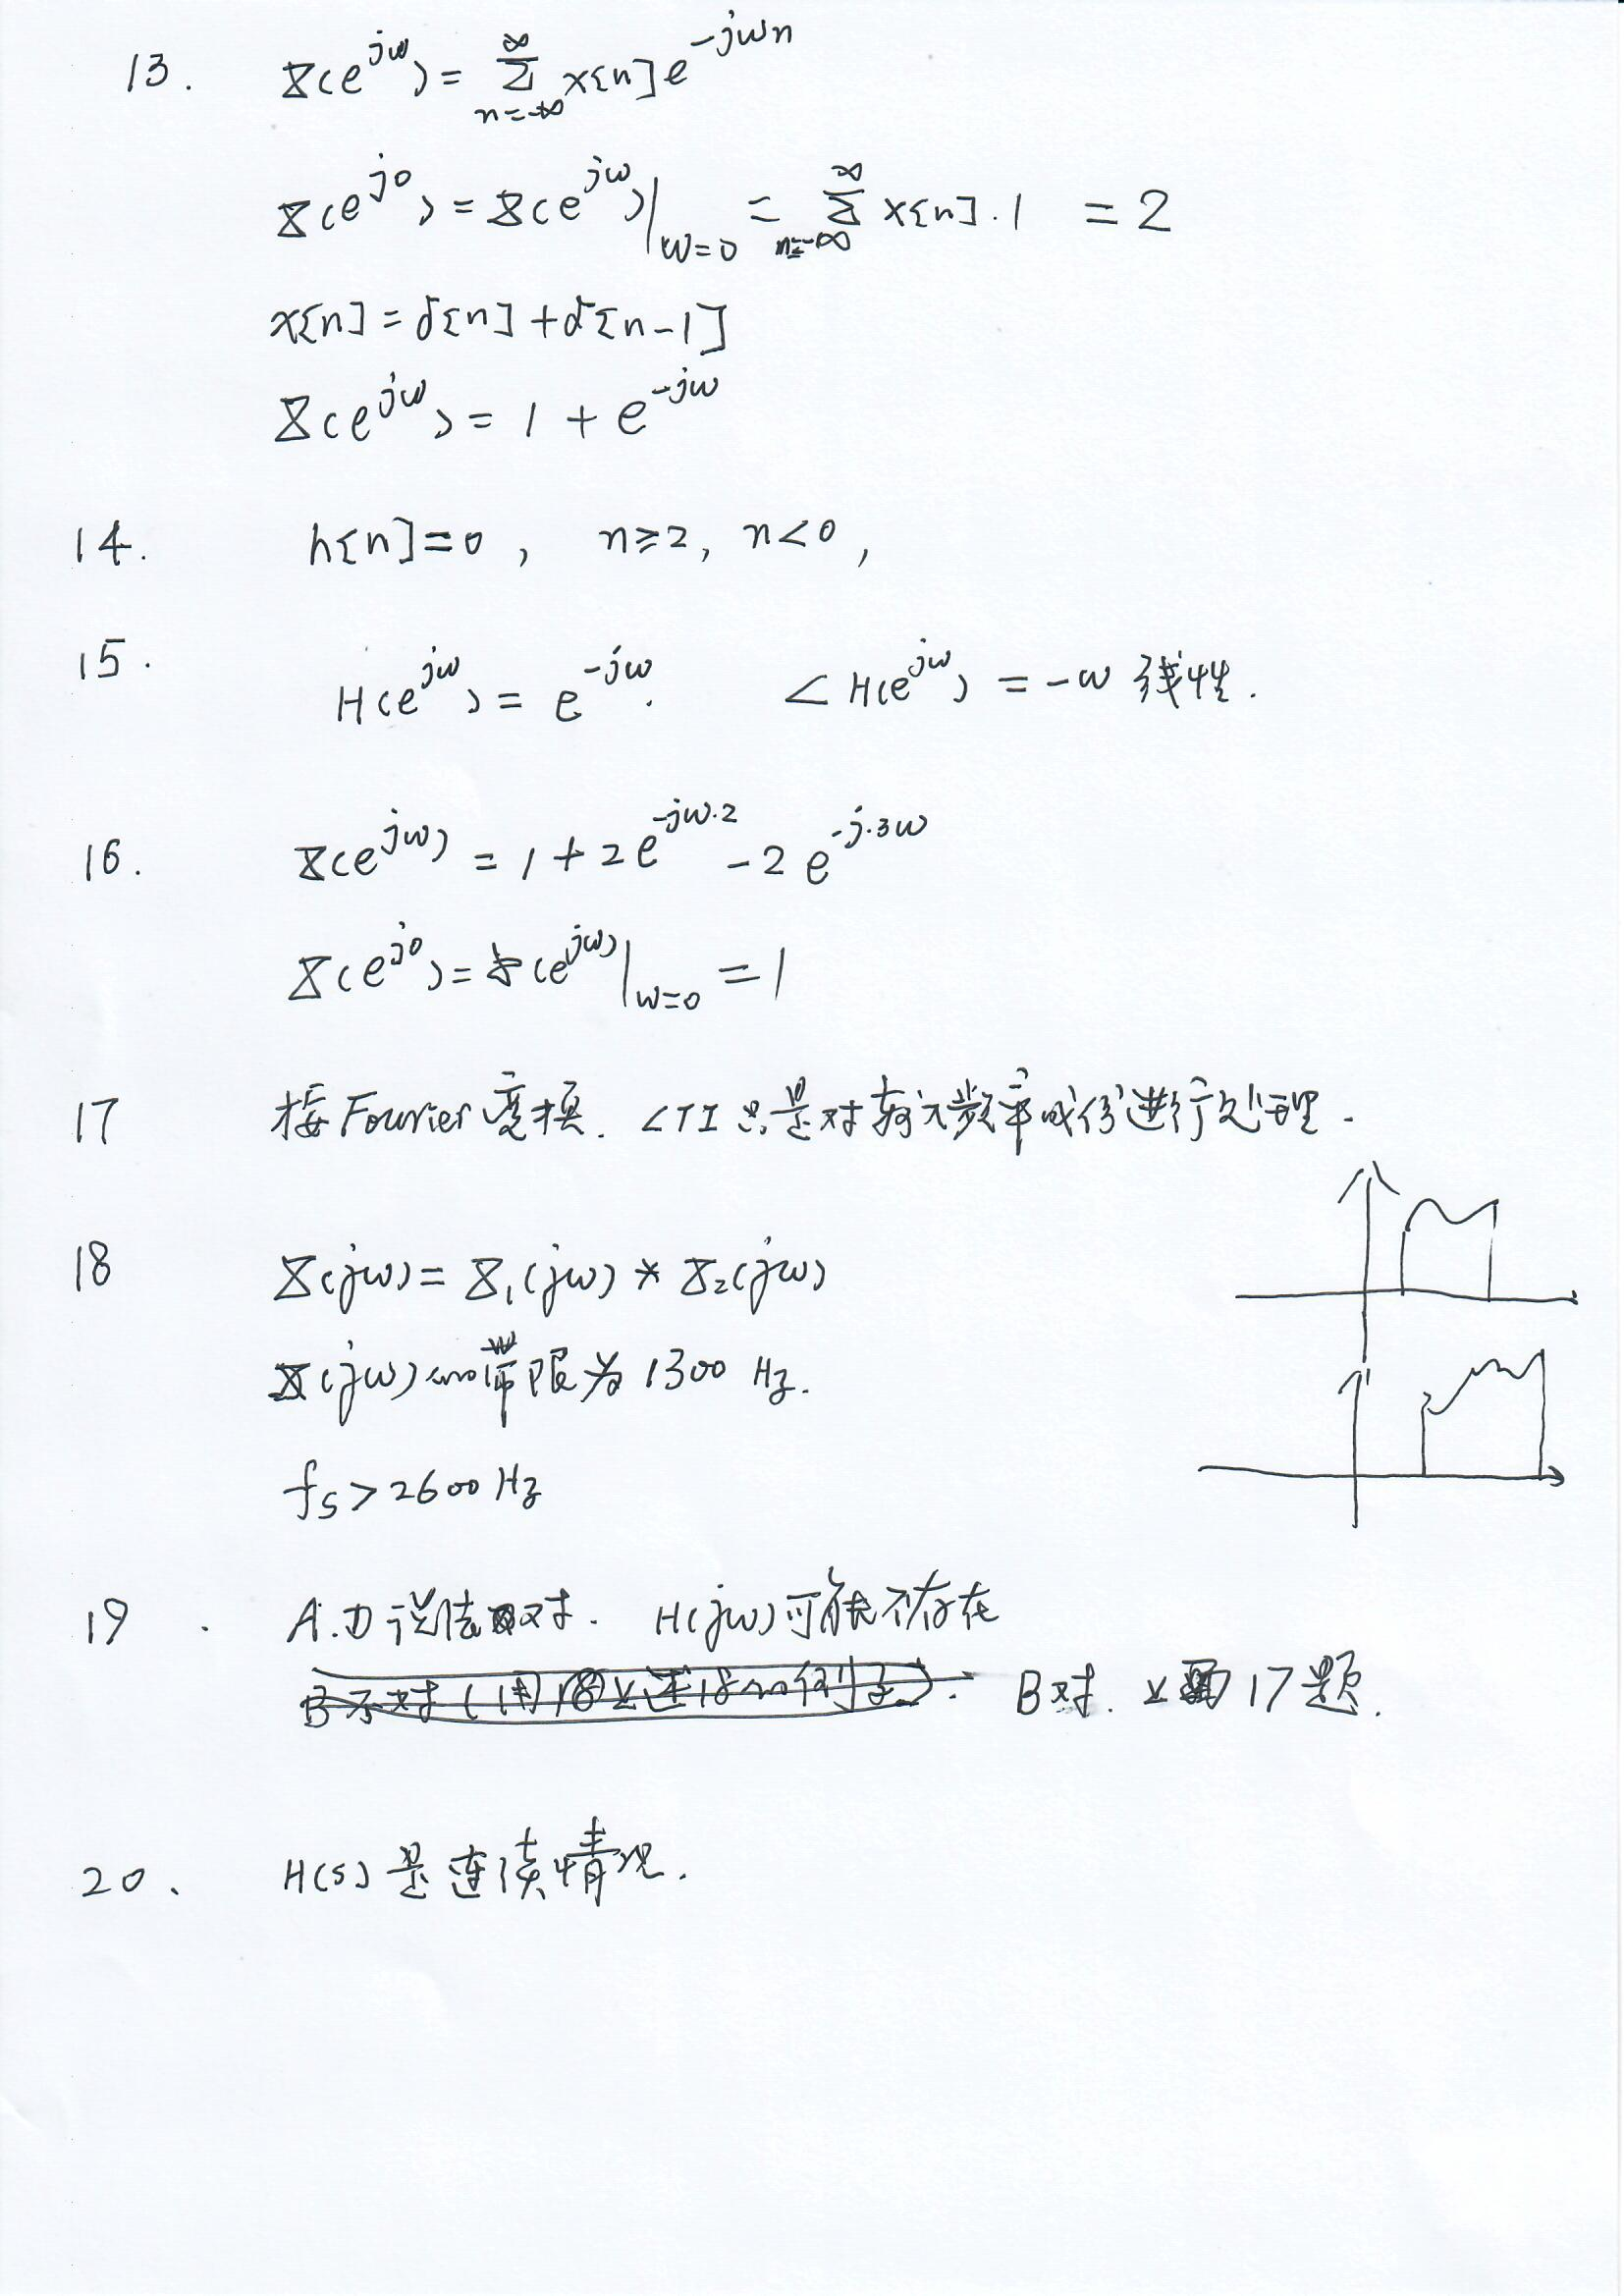 13. X(e^{jω}) = ∑_{n=-∞}^{∞} x[n] e^{-jωn}
X(e^{j0}) = X(e^{jω})|_{ω=0} = ∑_{n=-∞}^{∞} x[n]·1 = 2
x[n] = δ[n] + δ[n-1]
X(e^{jω}) = 1 + e^{-jω}
14. h[n]=0, n≥2, n<0,
15. H(e^{jω}) = e^{-jω}. ∠H(e^{jω}) = -ω 线性.
16. X(e^{jω}) = 1 + 2e^{-jω·2} - 2e^{-j·3ω}
X(e^{j0}) = X(e^{jω})|_{ω=0} = 1
17 按Fourier变换. LTI只是对输入频率成份进行处理.
18 X(jω) = X₁(jω) * X₂(jω)
X(jω)的带限为1300 Hz.
fs > 2600 Hz
19. A.D说法对. H(jω)可能不存在
B不对 B对. 17题.
20. H(s)是连续情况.